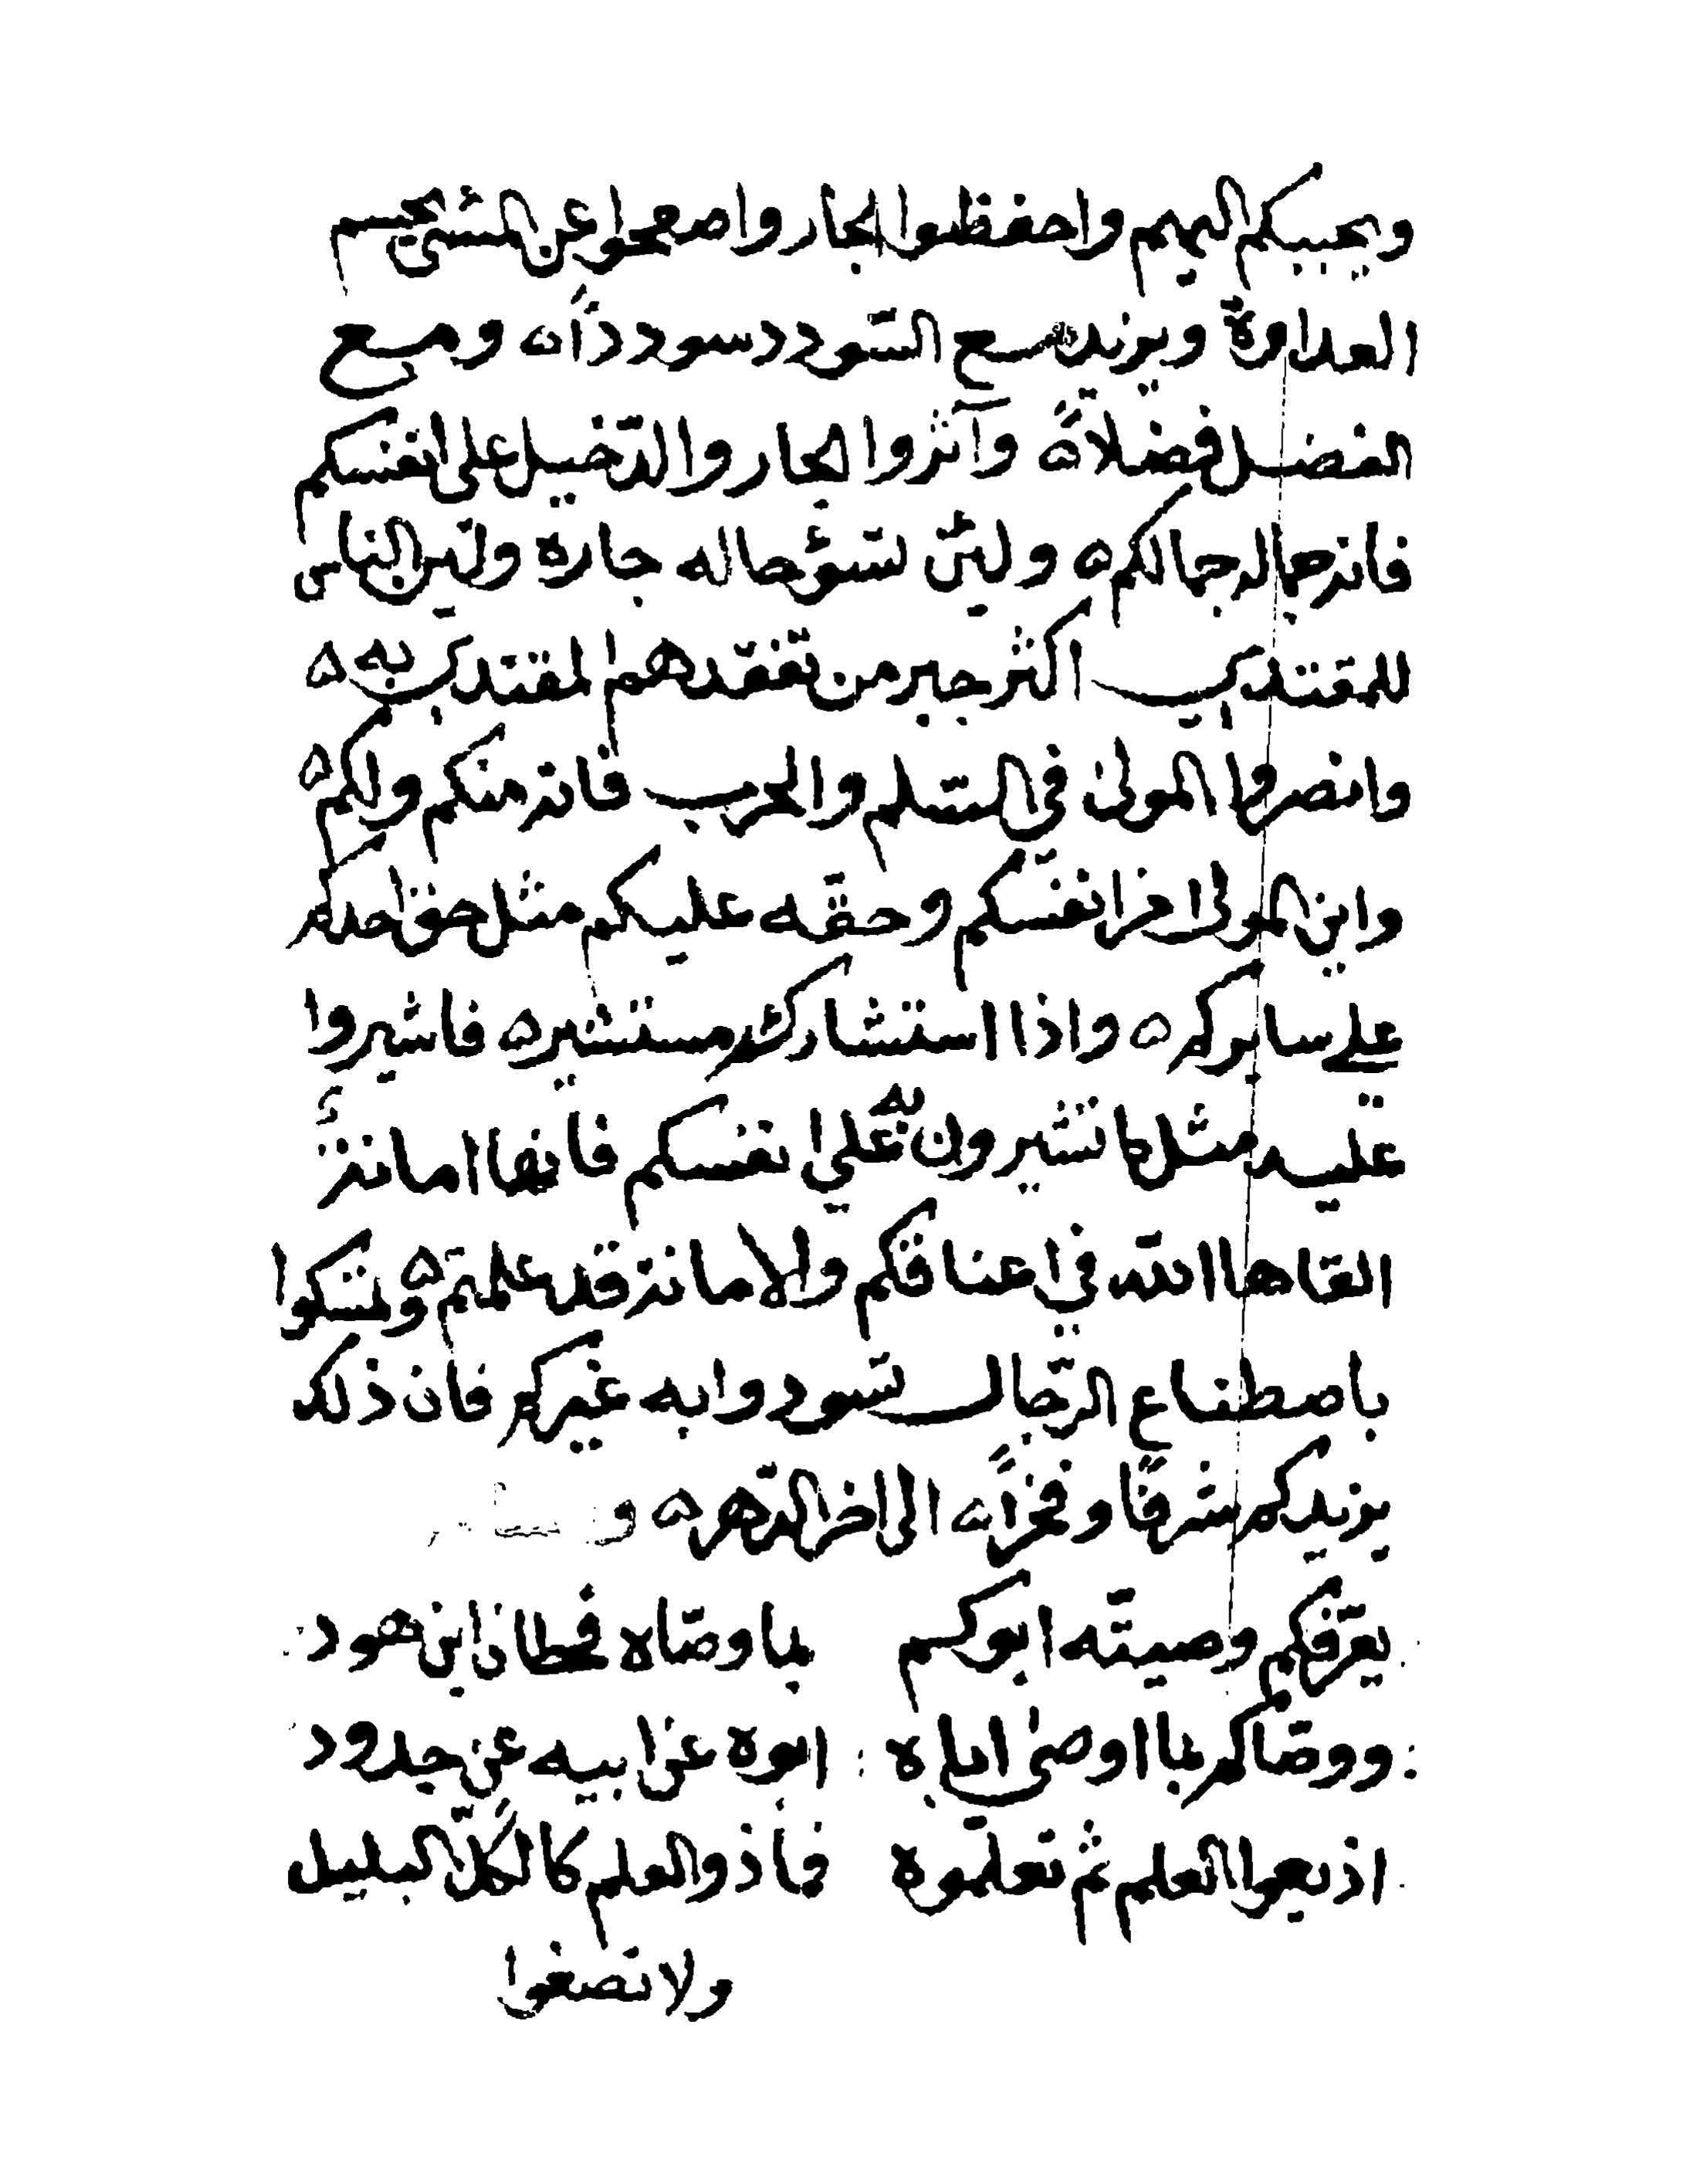 ويحببكم اليهم واحفظوا الجار واصفحوا عن المسئ يحسم
العداوة ويزيد مع السودد سوددًا ه ومع
الفضل فضلاً ه وآثروا الجار والدخيل على انفسكم
فانه جاله جمالكم ه ولئن تسؤ حاله جاره ولئن الناس
للمقتدي اكثر جبر من تفقدهم المقتدى به ه
وانصروا المولى في السلم والحرب فانه منكم ولكم ه
وابن المولى من انفسكم وحقه عليكم مثل حق احدكم
على سايركم ه واذا استشاركم مستشيره فاشيروا
عليه مثل ما تشيرون به على انفسكم فانها امانةٌ
القاها الله في اعناقكم والامانة قد علمتم ه وتمسكوا
باصطناع الرجال تسودوا به غيركم فان ذلك
يزيدكم شرفًا وفخرًا ه الى اخر الدهر ه و
يعرفكم وصيته ابوكم بما وصاه قحطان ابن هود
ووصاكم بما اوصى اباه ابوه عن ابيه عن جدود
اذيعوا العلم ثم تعلموه فما ذو العلم كالكل البليد
ولا تصغوا